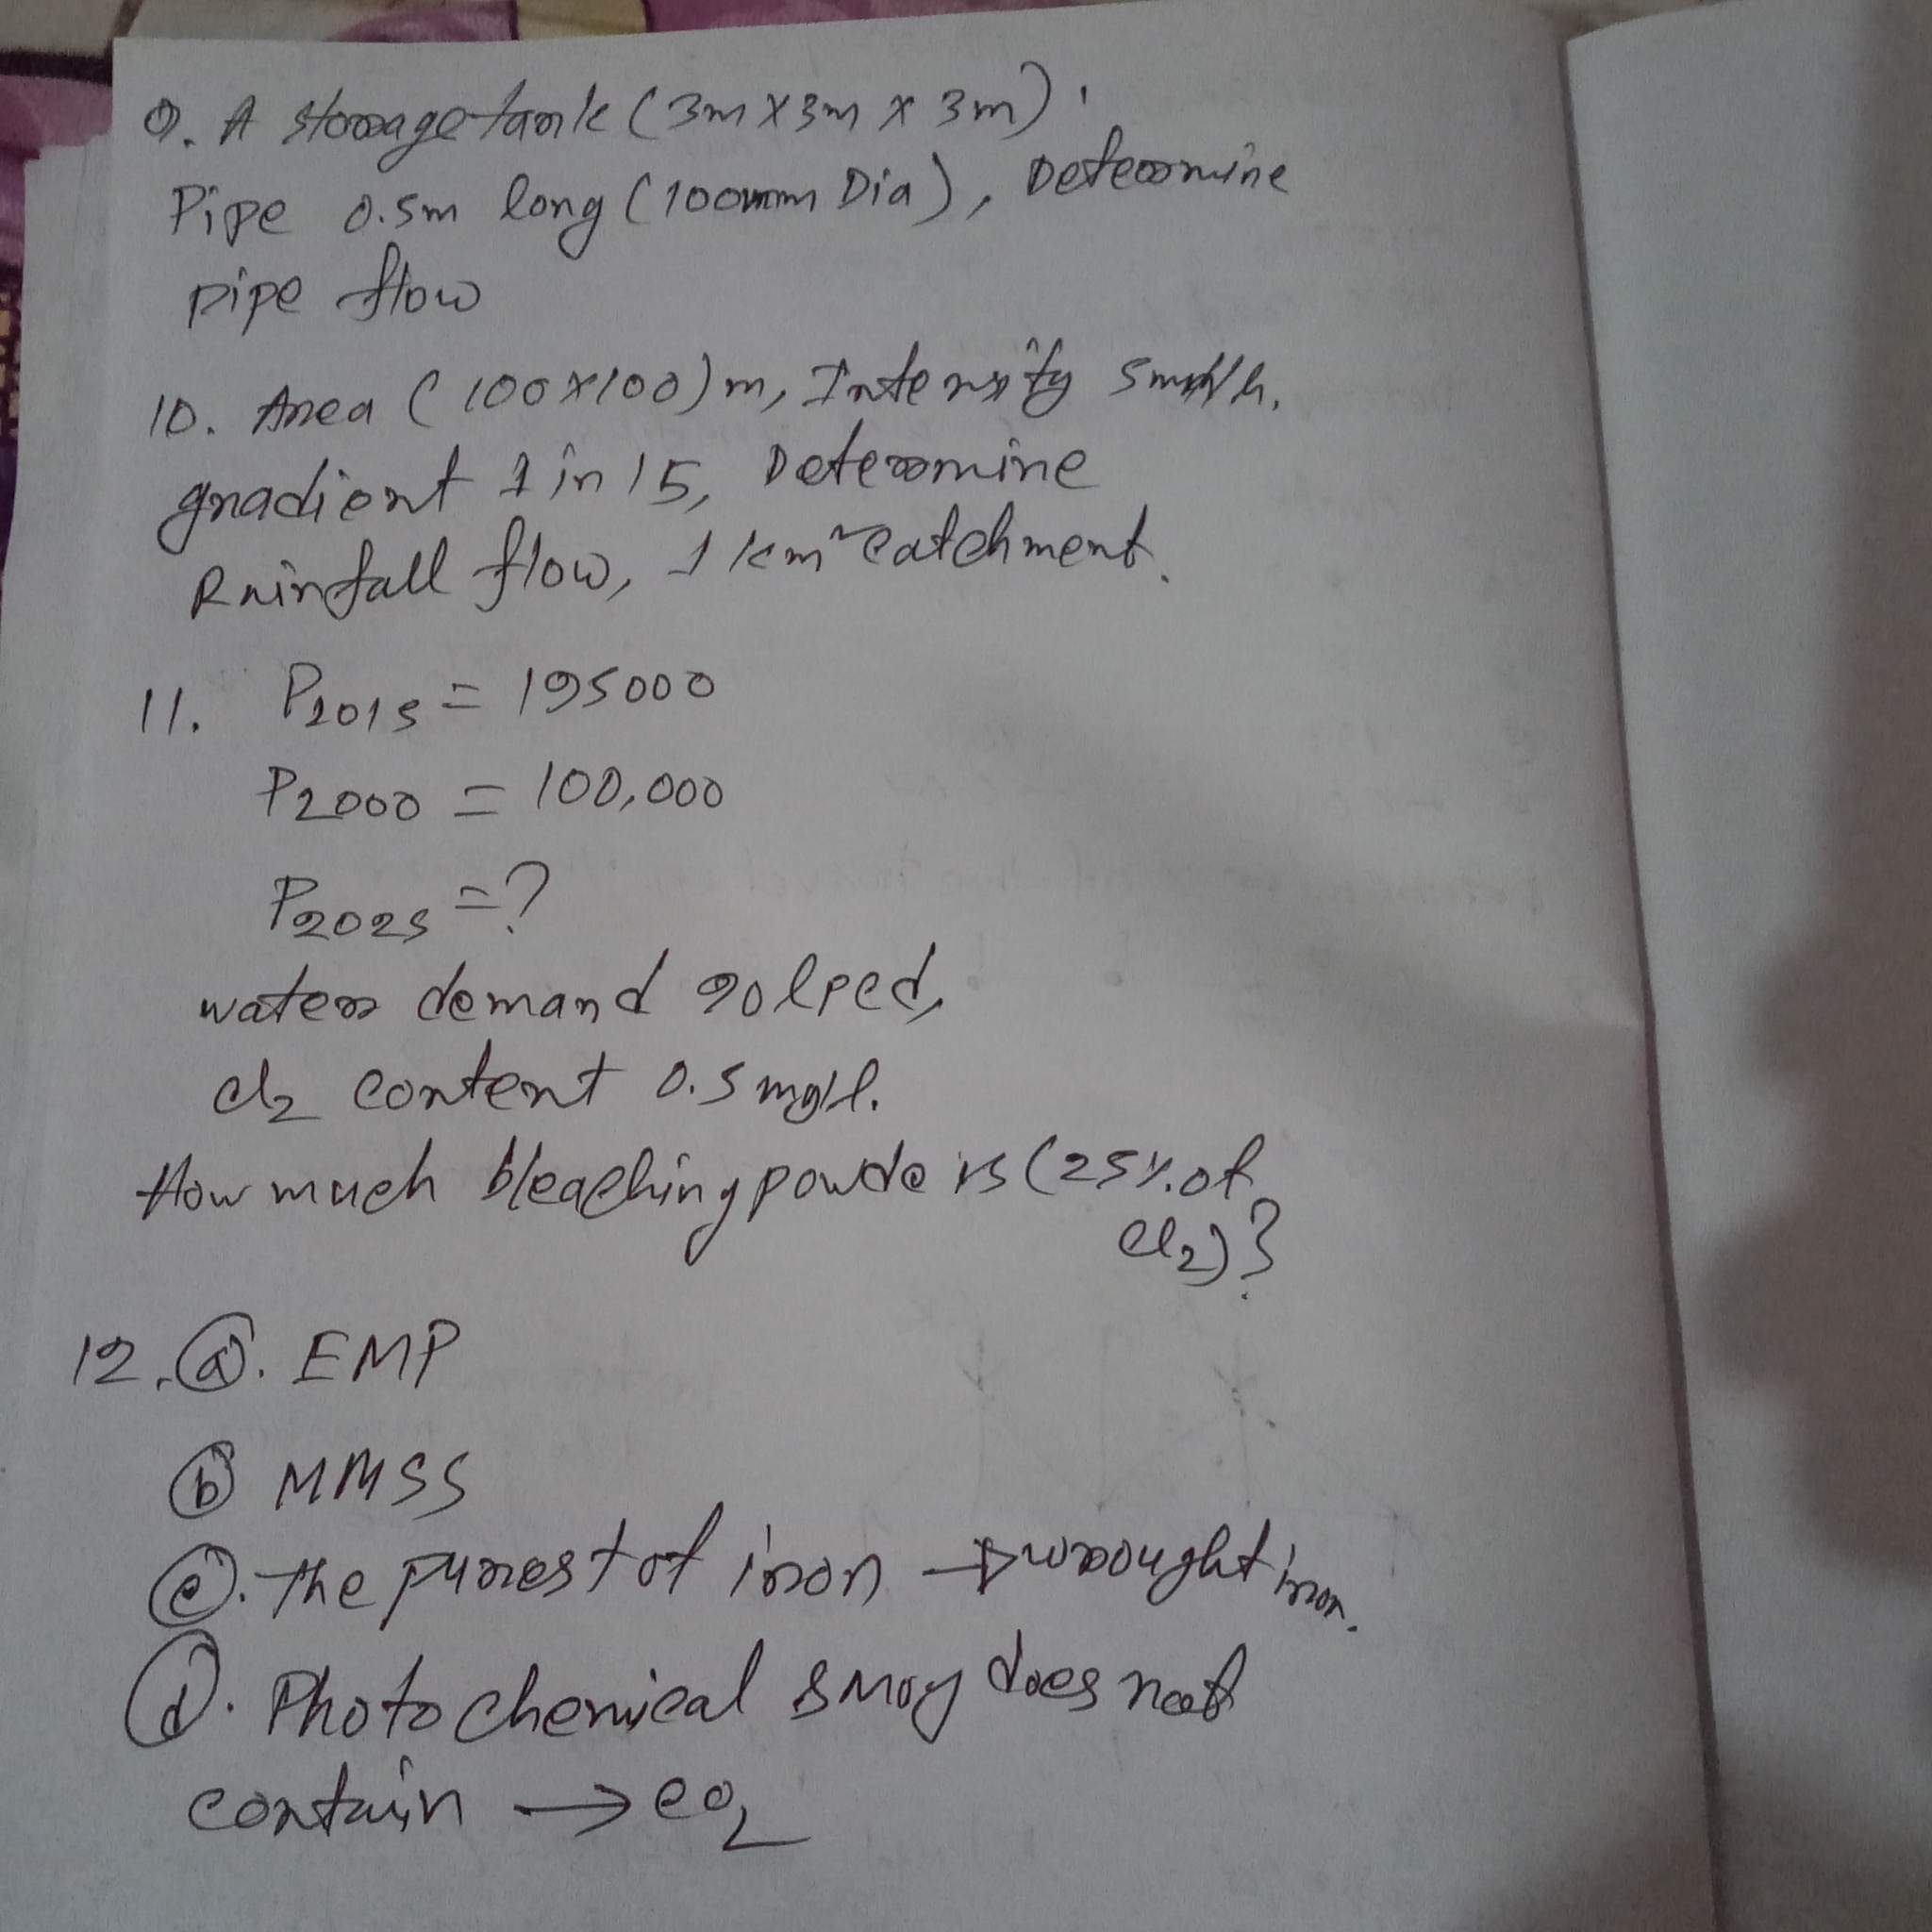 9. A storage tank (3m x 3m x 3m).
Pipe 0.5m long (100mm Dia), Determine
pipe flow
10. Area (100x100)m, Intensity 5mm/h.
gradient 1 in 15, Determine
Rainfall flow, 1 km² catchment.
11. P2015 = 195000
P2000 = 100,000
P2025 = ?
water demand 90 lpcd,
Cl2 content 0.5 mg/l.
How much bleaching powde is (25% of
Cl2)?
12. (a). EMP
(b) MMSS
(c). The purest of iron → wrought iron.
(d). Photo chemical smog does not
contain → CO2